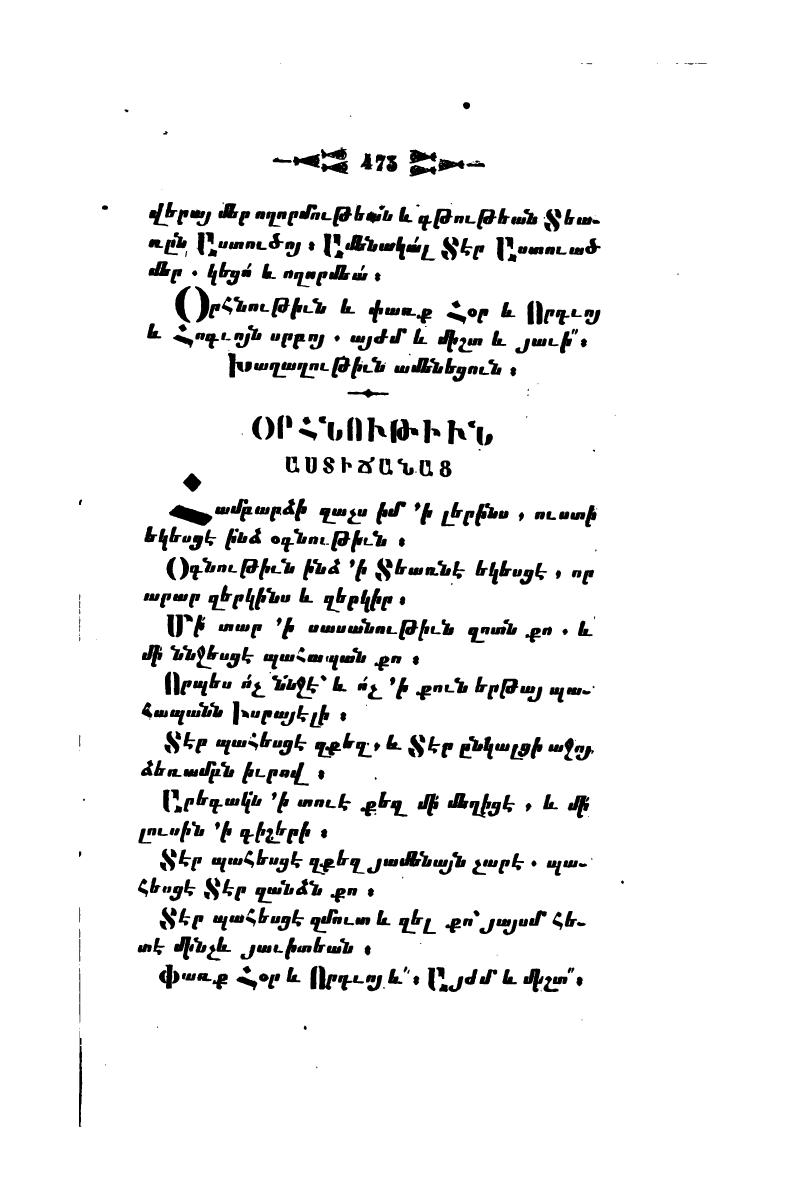 473
վերայ մեր ողորմութեան և գթութեան Տեառն-
ըն Աստուծոյ ։ Ամենակալ Տէր Աստուած
մեր . կեցո՛ և ողորմեա՛ ։
Օրհնութիւն և փառք Հօր և Որդւոյ
և Հոգւոյն սրբոյ . այժմ և միշտ և յաւի՞ ։
Խաղաղութիւն ամենեցուն ։
ՕՐՀՆՈՒԹԻՒՆ
ԱՍՏԻՃԱՆԱՑ
Համբարձի զաչս իմ ՚ի լերինս , ուստի
եկեսցէ ինձ օգնութիւն ։
Օգնութիւն ինձ ՚ի Տեառնէ եկեսցէ , որ
արար զերկինս և զերկիր ։
Մի՛ տար ՚ի սասանութիւն զոտն քո . և
մի ննջեսցէ պահապան քո ։
Որպէս ո՛չ ննջէ՝ և ո՛չ ՚ի քուն երթայ պա-
հապանն Իսրայէլի ։
Տէր պահեսցէ զքեզ , և Տէր ընկալցի աջոյ
ձեռամբն իւրով ։
Արեգակն ՚ի տուէ քեզ մի մեղիցէ , և մի
լուսին ՚ի գիշերի ։
Տէր պահեսցէ զքեզ յամենայն չարէ . պա-
հեսցէ Տէր զանձն քո ։
Տէր պահեսցէ զմուտ և զել քո՝ յայսմ հե-
տէ մինչև յաւիտեան ։
Փառք Հօր և Որդւոյ և՞ ։ Այժմ և միշտ՞ ։